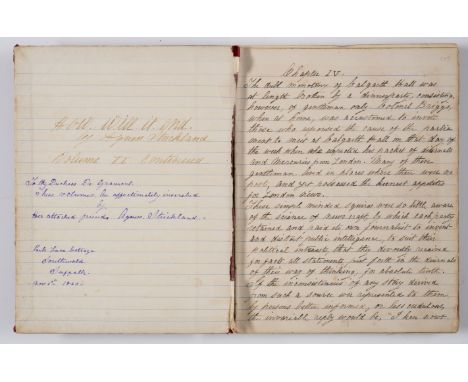 by Agnes Strickland
Volume II Continued
To the Duchess De Gramont.
These volumes are affectionately inscribed
By
Her attached friend Agnes Strickland.
Park Lane Cottage
Southwold
Suffolk.
Chapter IV.
The dull monotony of Calgarth Hall was
at length broken by a dinner party, consisting
however, of gentlemen only. Colonel Briggs,
when at home, was accustomed to invite
those who espoused the cause of the
to meet at Calgarth Hall on that day of
the week when the his packet of
and Mercuries from London. Many of these
gentlemen lived in places where there were no
post, and yet possessed the keenest appetites
for London news.
These simple minded squires were so little aware
of the science of news by which each party
retained and paid its own journalist to invent
and distort public intelligence, to suit their
political interest, that they devoutly received
for facts all statements put forth in the
of their way of thinking, for absolute truth.
If the inconsistencies of any story derived
from such a source were represented to them
by persons better informed, or less credulous,
the invariable reply would be, I